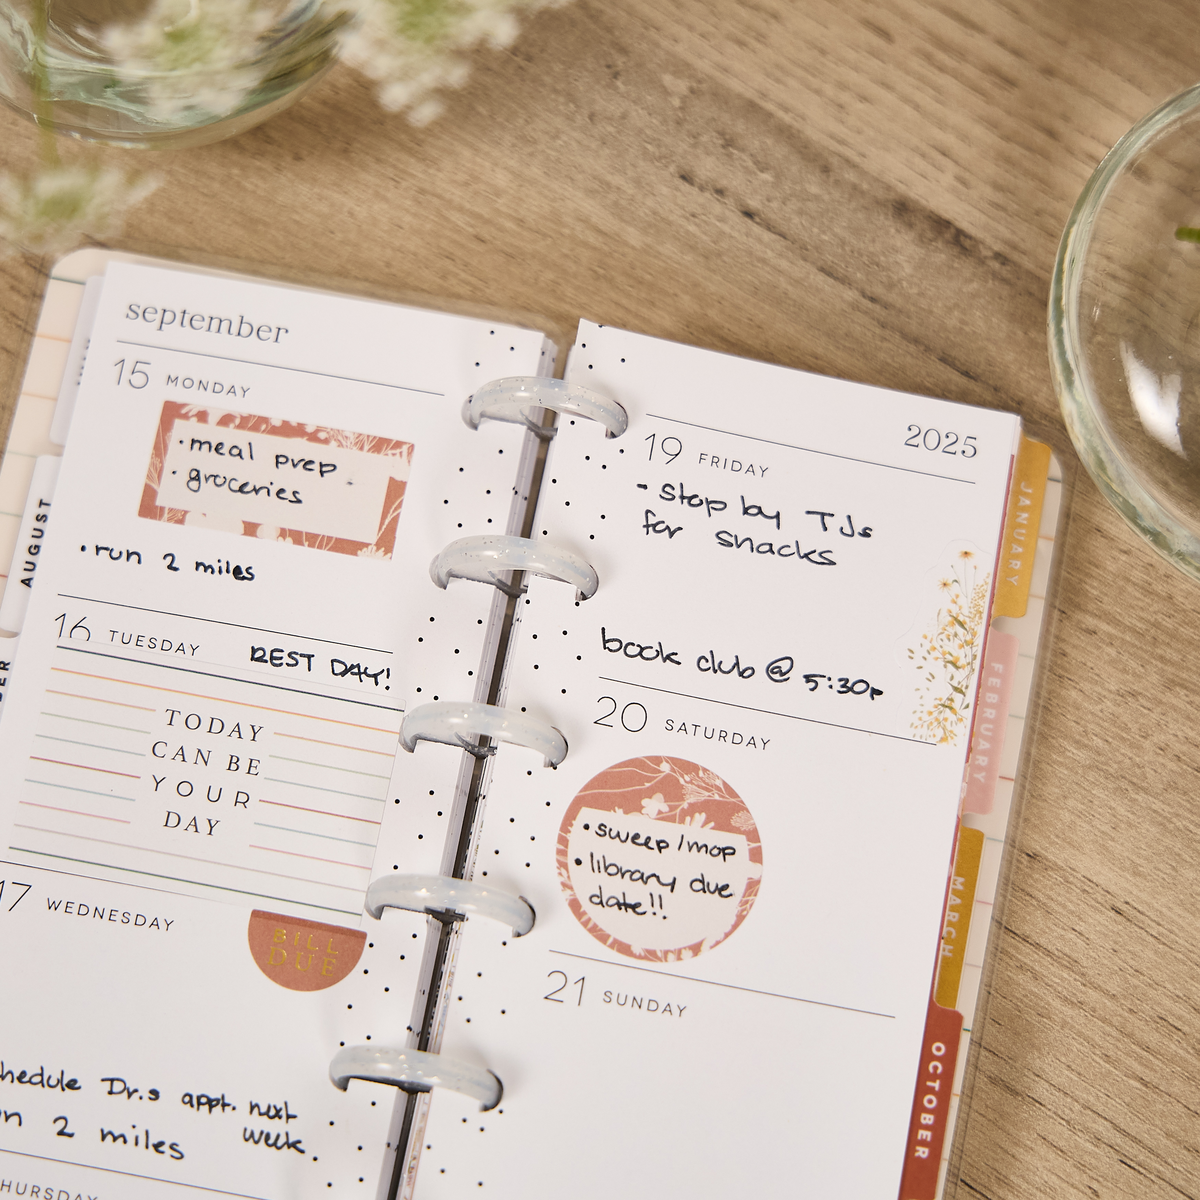 september
15 MONDAY
· meal prep
· groceries
· run 2 miles
16 TUESDAY REST DAY!
TODAY
CAN BE
YOUR
DAY
17 WEDNESDAY
BILL
DUE
hedule Dr.s appt. next
week.
n 2 miles
HURSDAY
2025
19 FRIDAY
- stop by TJs
for snacks
book club @ 5:30p
20 SATURDAY
• sweep/mop
• library due
date!!
21 SUNDAY
AUGUST
BER
JANUARY
FEBRUARY
MARCH
OCTOBER